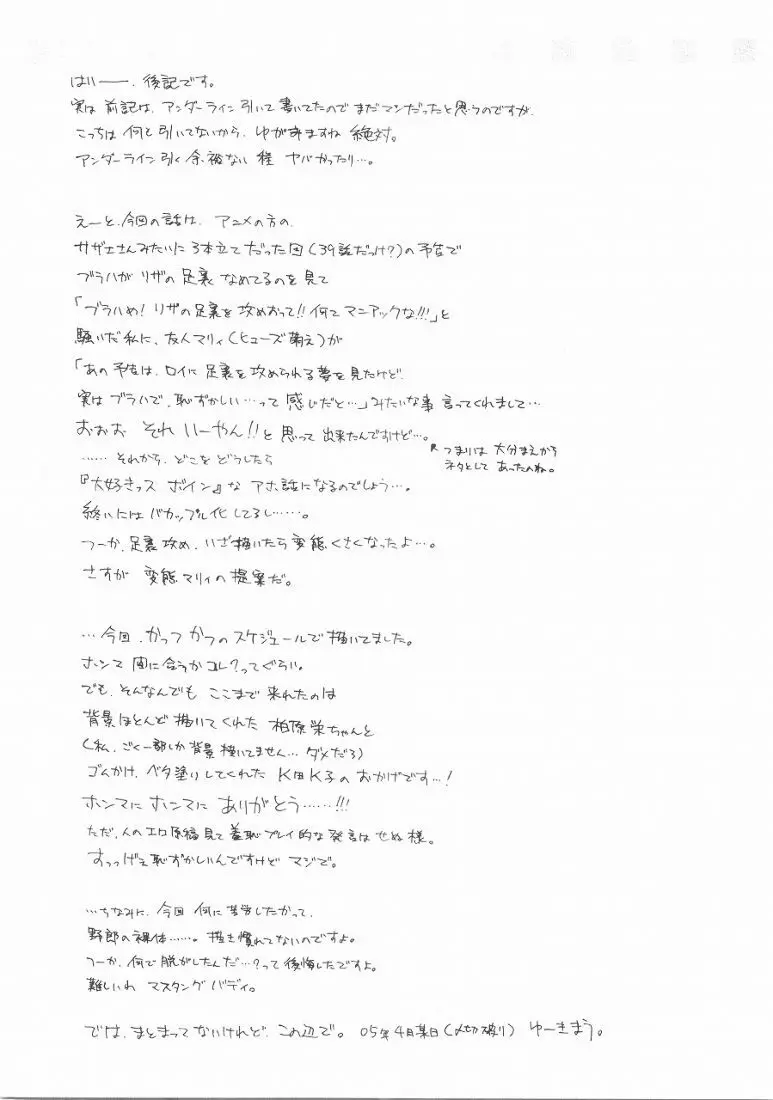 はいー、後記です。
実は前記は、アンダーライン引いて書いてたのでまだマシだったと思うのですが、
こっちは何も引いてないから、ゆがみますね絶対。
アンダーライン引く余裕ない程ヤバかったり…。
えーと、今回の話は、アニメの方の、
サザエさんみたいに3本立てだった回(39話だっけ?)の予告で
ブラハがリザの足裏なめてるのを見て
「ブラハめ!リザの足裏を攻めおって!!何てマニアックな!!!」と
騒いだ私に、友人マリィ(ヒューズ萌え)が
「あの予告は、ロイに足裏を攻められる夢を見たけど、
実はブラハで、恥ずかしい…って感じだと…」みたいな事言ってくれまして…
おおお それいーやん!!と思って出来たんですけど…。
つまりは大分まえから
ネタとしてあったのね。
……それから、どこをどうしたら
『大好きっスボイン』なアホ話になるのでしょう…。
終いにはバカップル化してるし……。
つーか、足裏攻め、いざ描いたら変態くさくなったよ…。
さすが変態マリィの提案だ。
…今回、かっつかつのスケジュールで描いてました。
ホンマ間に合うかコレ?ってぐらい。
でも、そんなんでもここまで来れたのは
背景ほとんど描いてくれた柏原栄ちゃんと
(私、ごく一部しか背景描いてません…ダメだろ)
ゴムかけ、ベタ塗りしてくれたK田K子のおかげです…!
ホンマにホンマにありがとう……!!!
ただ、人のエロ原稿見て羞恥プレイ的な発言はせぬ様。
すっっげえ恥ずかしいんですけどマジで。
…ちなみに、今回何に苦労したかって、
野郎の裸体……。描き慣れてないのですよ。
つーか、何で脱がしたんだ…?って後悔したですよ。
難しいわ マスタングバディ。
では、まとまってないけれど、この辺で。 05年4月某日(〆切破り) ゆーきまう。